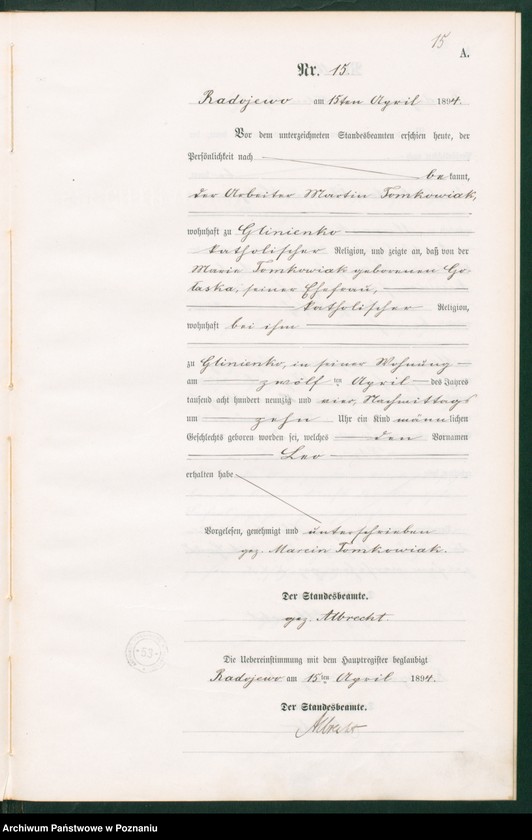 15
A.
Nr. 15.
Radojewo am 15ten April 1894.
Vor dem unterzeichneten Standesbeamten erschien heute, der
Persönlichkeit nach
bekannt,
der Arbeiter Martin Tomkowiak,
wohnhaft zu Glinienko
katholischer Religion, und zeigte an, daß von der
Marie Tomkowiak geborenen Go
laska, seiner Ehefrau,
katholischer Religion,
wohnhaft bei ihm
zu Glinienko, in seiner Wohnung
am zwölf ten April des Jahres
tausend acht hundert neunzig und vier, Nachmittags
um zehn Uhr ein Kind männlichen
Geschlechts geboren worden sei, welches den Vornamen
Leo
erhalten habe
Vorgelesen, genehmigt und unterschrieben
gez. Marcin Tomkowiak.
Der Standesbeamte.
gez. Albrecht.
Die Uebereinstimmung mit dem Hauptregister beglaubigt
Radojewo am 15ten April 1894.
Der Standesbeamte.
Albrecht
53
Archiwum Państwowe w Poznaniu